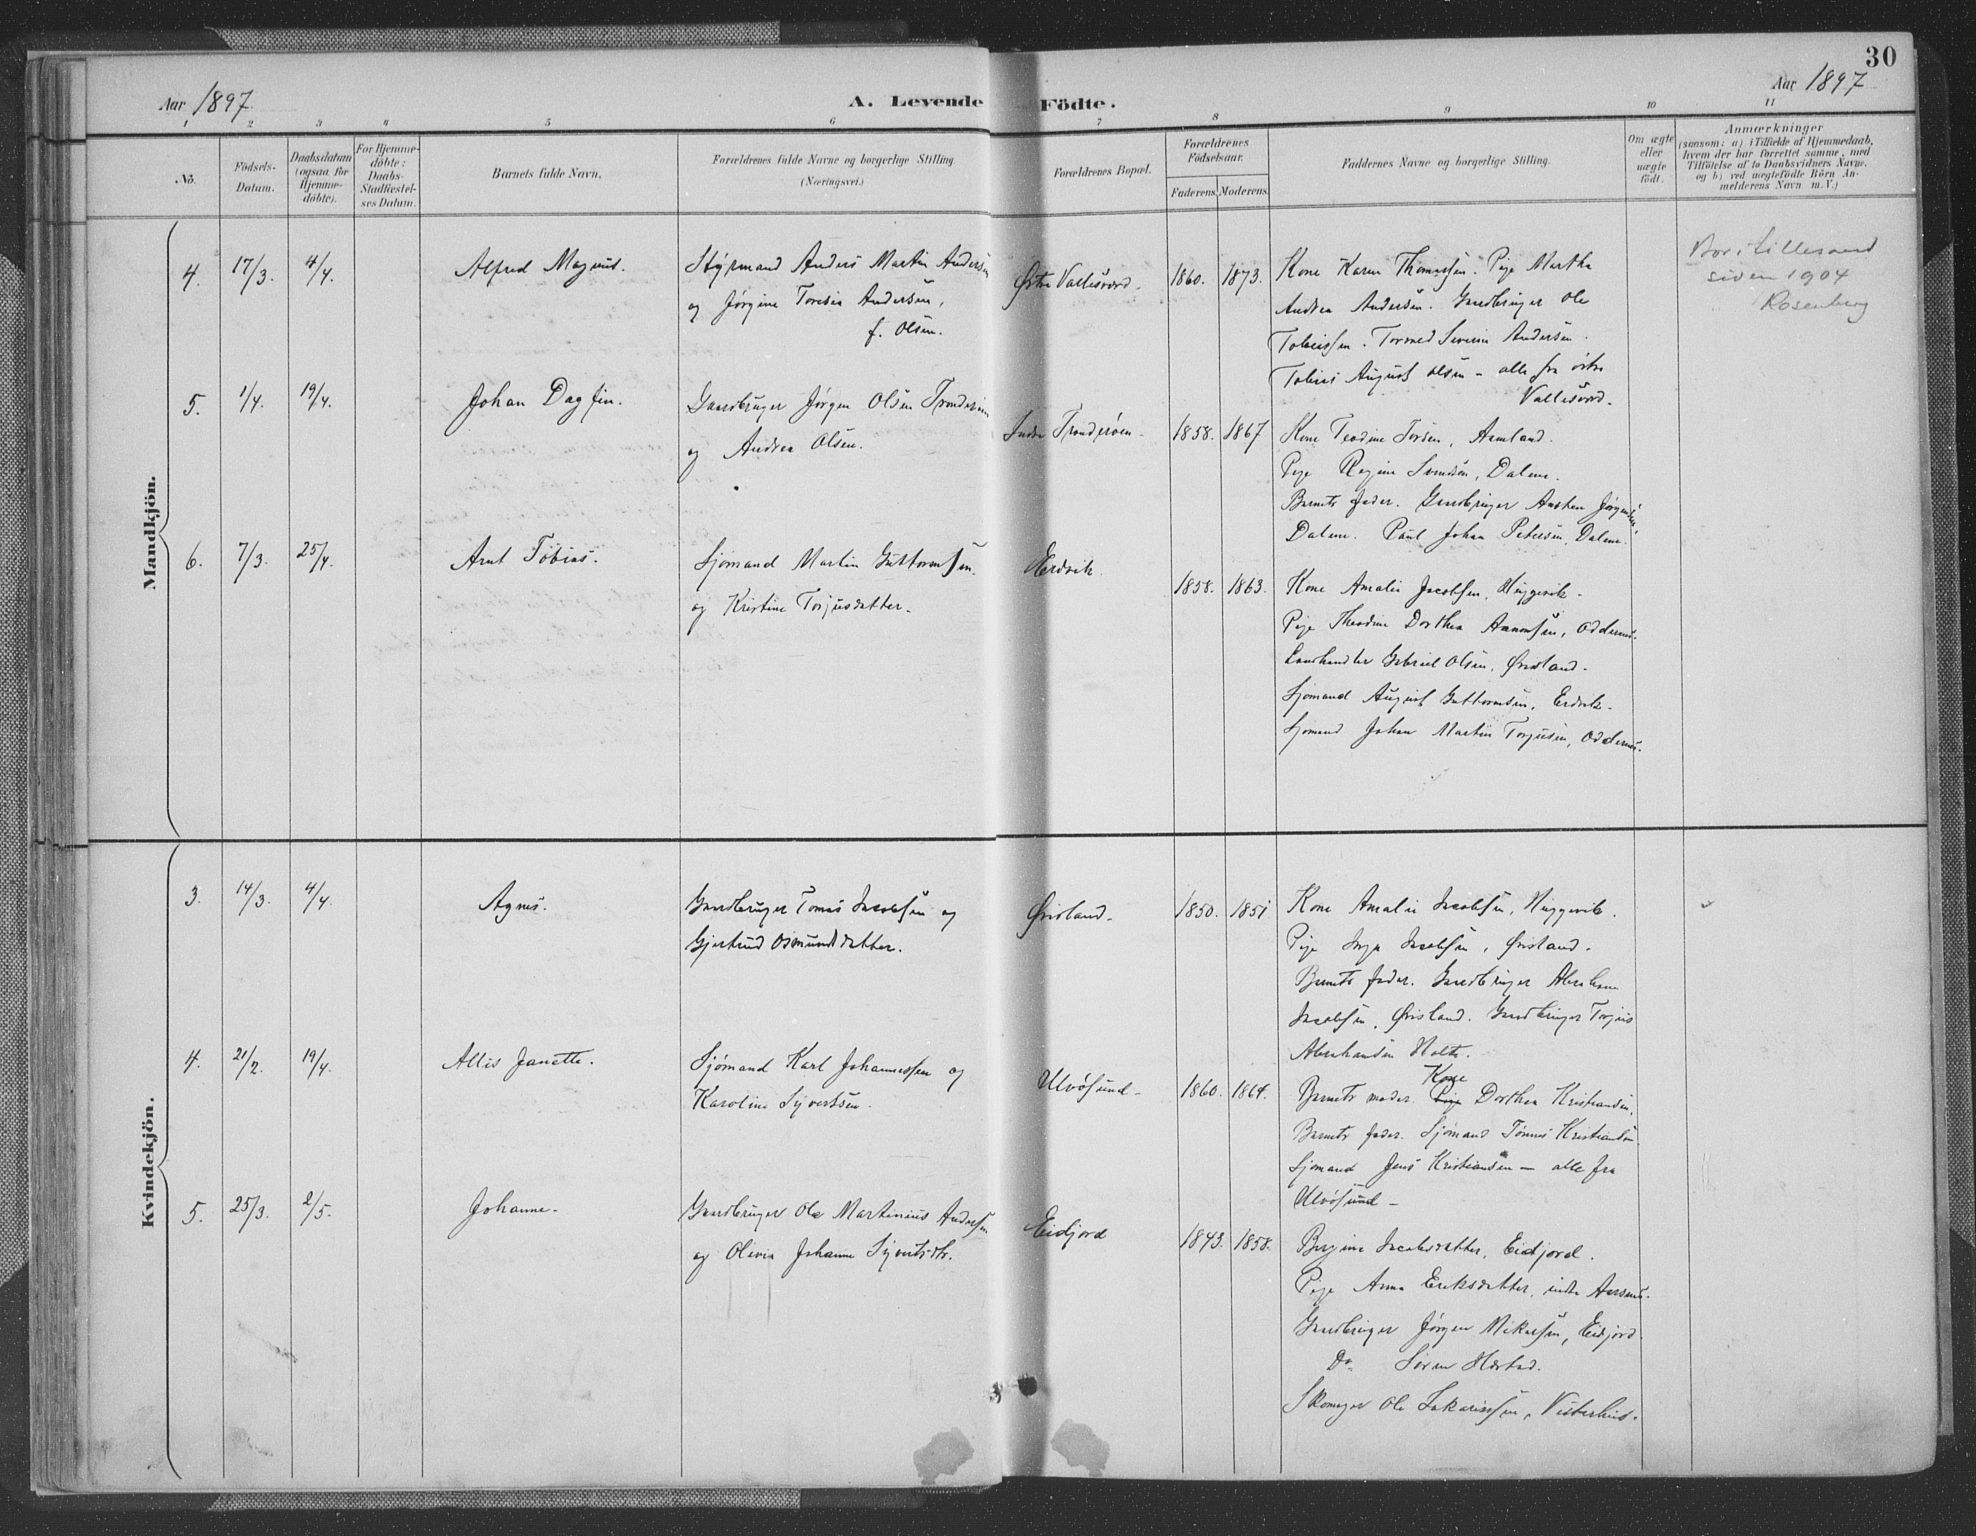 30
Aar 1897.
A. Levende Födte.
Aar 1897
1 2 3 4 5 6 7 8 9 10 11
No.
Födsels-Datum.
Daabsdatum (ogsaa for Hjemme-döbte).
For Hjemme-döbte: Daabs-Stadfæstel-ses Datum.
Barnets fulde Navn.
Forældrenes fulde Navne og borgerlige Stilling
(Næringsvei.)
Forældrenes Bopæl.
Forældrenes Födselsaar.
Faderens. Moderens.
Faddernes Navne og borgerlige Stilling.
Om ægte eller uægte födt.
Anmærkninger
(saasom: a) i Tilfælde af Hjemmedaab, hvem der har forrettet samme, med Tilföielse af to Daabsvidners Navne, og b) ved uægtefödte Börn An-melderens Navn m. V.)
Mandkjön.
4. 17/3. 4/4. Alfred Magnus.
Styrmand Anders Martin Andersen
og Jørgine Toresia Andersen,
f. Olsen.
Østre Vallesværd. 1860. 1873.
Kone Karen Thomassen. Pige Martha
Andrea Andersen. Gaardbruger Ole
Tobiassen. Tormod Severin Andersen.
Tobias August Olsen - alle fra östre
Vallesværd.
Bor i Lillesand
siden 1904
Rosenberg
5. 1/4. 19/4. Johan Dagfin.
Gaardbruger Jørgen Olsen
og Andrea Olsen.
Indre 1858. 1867
Kone Teodine Torsen,
Pige Regine Svendsen, Dalene.
Barnets fader. Gaardbruger Jørgensen,
Dalene. Paul Johan Petersen, Dalene.
6. 7/3. 25/4. Arnt Tobias.
Sjømand Martin Guttormsen.
og Kristine Torjusdatter.
Eidvik. 1858. 1863.
Kone Amalie Jacobsen, Huggevik.
Pige Theodine Dorthea Oddernes.
Landhandler Gabriel Olsen, Øvisland.
Sjømand August Guttormsen, Eidvik.
Sjømand Johan Martin Torjusen, Oddernes.
Kvindekjön.
3. 14/3. 4/4. Agnes.
Gaardbruger Tomas Jacobsen og
Gjertrud Osmundsdatter.
Øvisland. 1850. 1851
Kone Amalie Jacobsen, Huggevik.
Pige Inga Jacobsen, Øvisland.
Barnets fader. Gaardbruger Abraham
Jacobsen, Øvisland. Gaardbruger Torjus
Abrahamsen Holte.
4. 21/2. 19/4. Allis Janette.
Sjømand Karl Johannessen og
Karoline Syvertsen.
Ulvøsund. 1860. 1864.
Kone
Barnets moder. Pige Dorthea Kristiansen.
Barnets fader. Sjømand Tønnes Kristiansen
Sjømand Jens Kristiansen - alle fra
Ulvøsund -
5. 25/3. 2/5. Johanne.
Gaardbruger Ole Martinius Andersen
og Olivia Johanne Syvertsdtr.
Eidjord 1843. 1858.
Bergine Jacobsdatter, Eidjord.
Pige Anna Eriksdatter, indre Aarsnes.
Gaardbruger Jørgen Mikalsen, Eidjord
Do. Søren Hærstad.
Skomager Ole Sakariassen, Vesterhus.